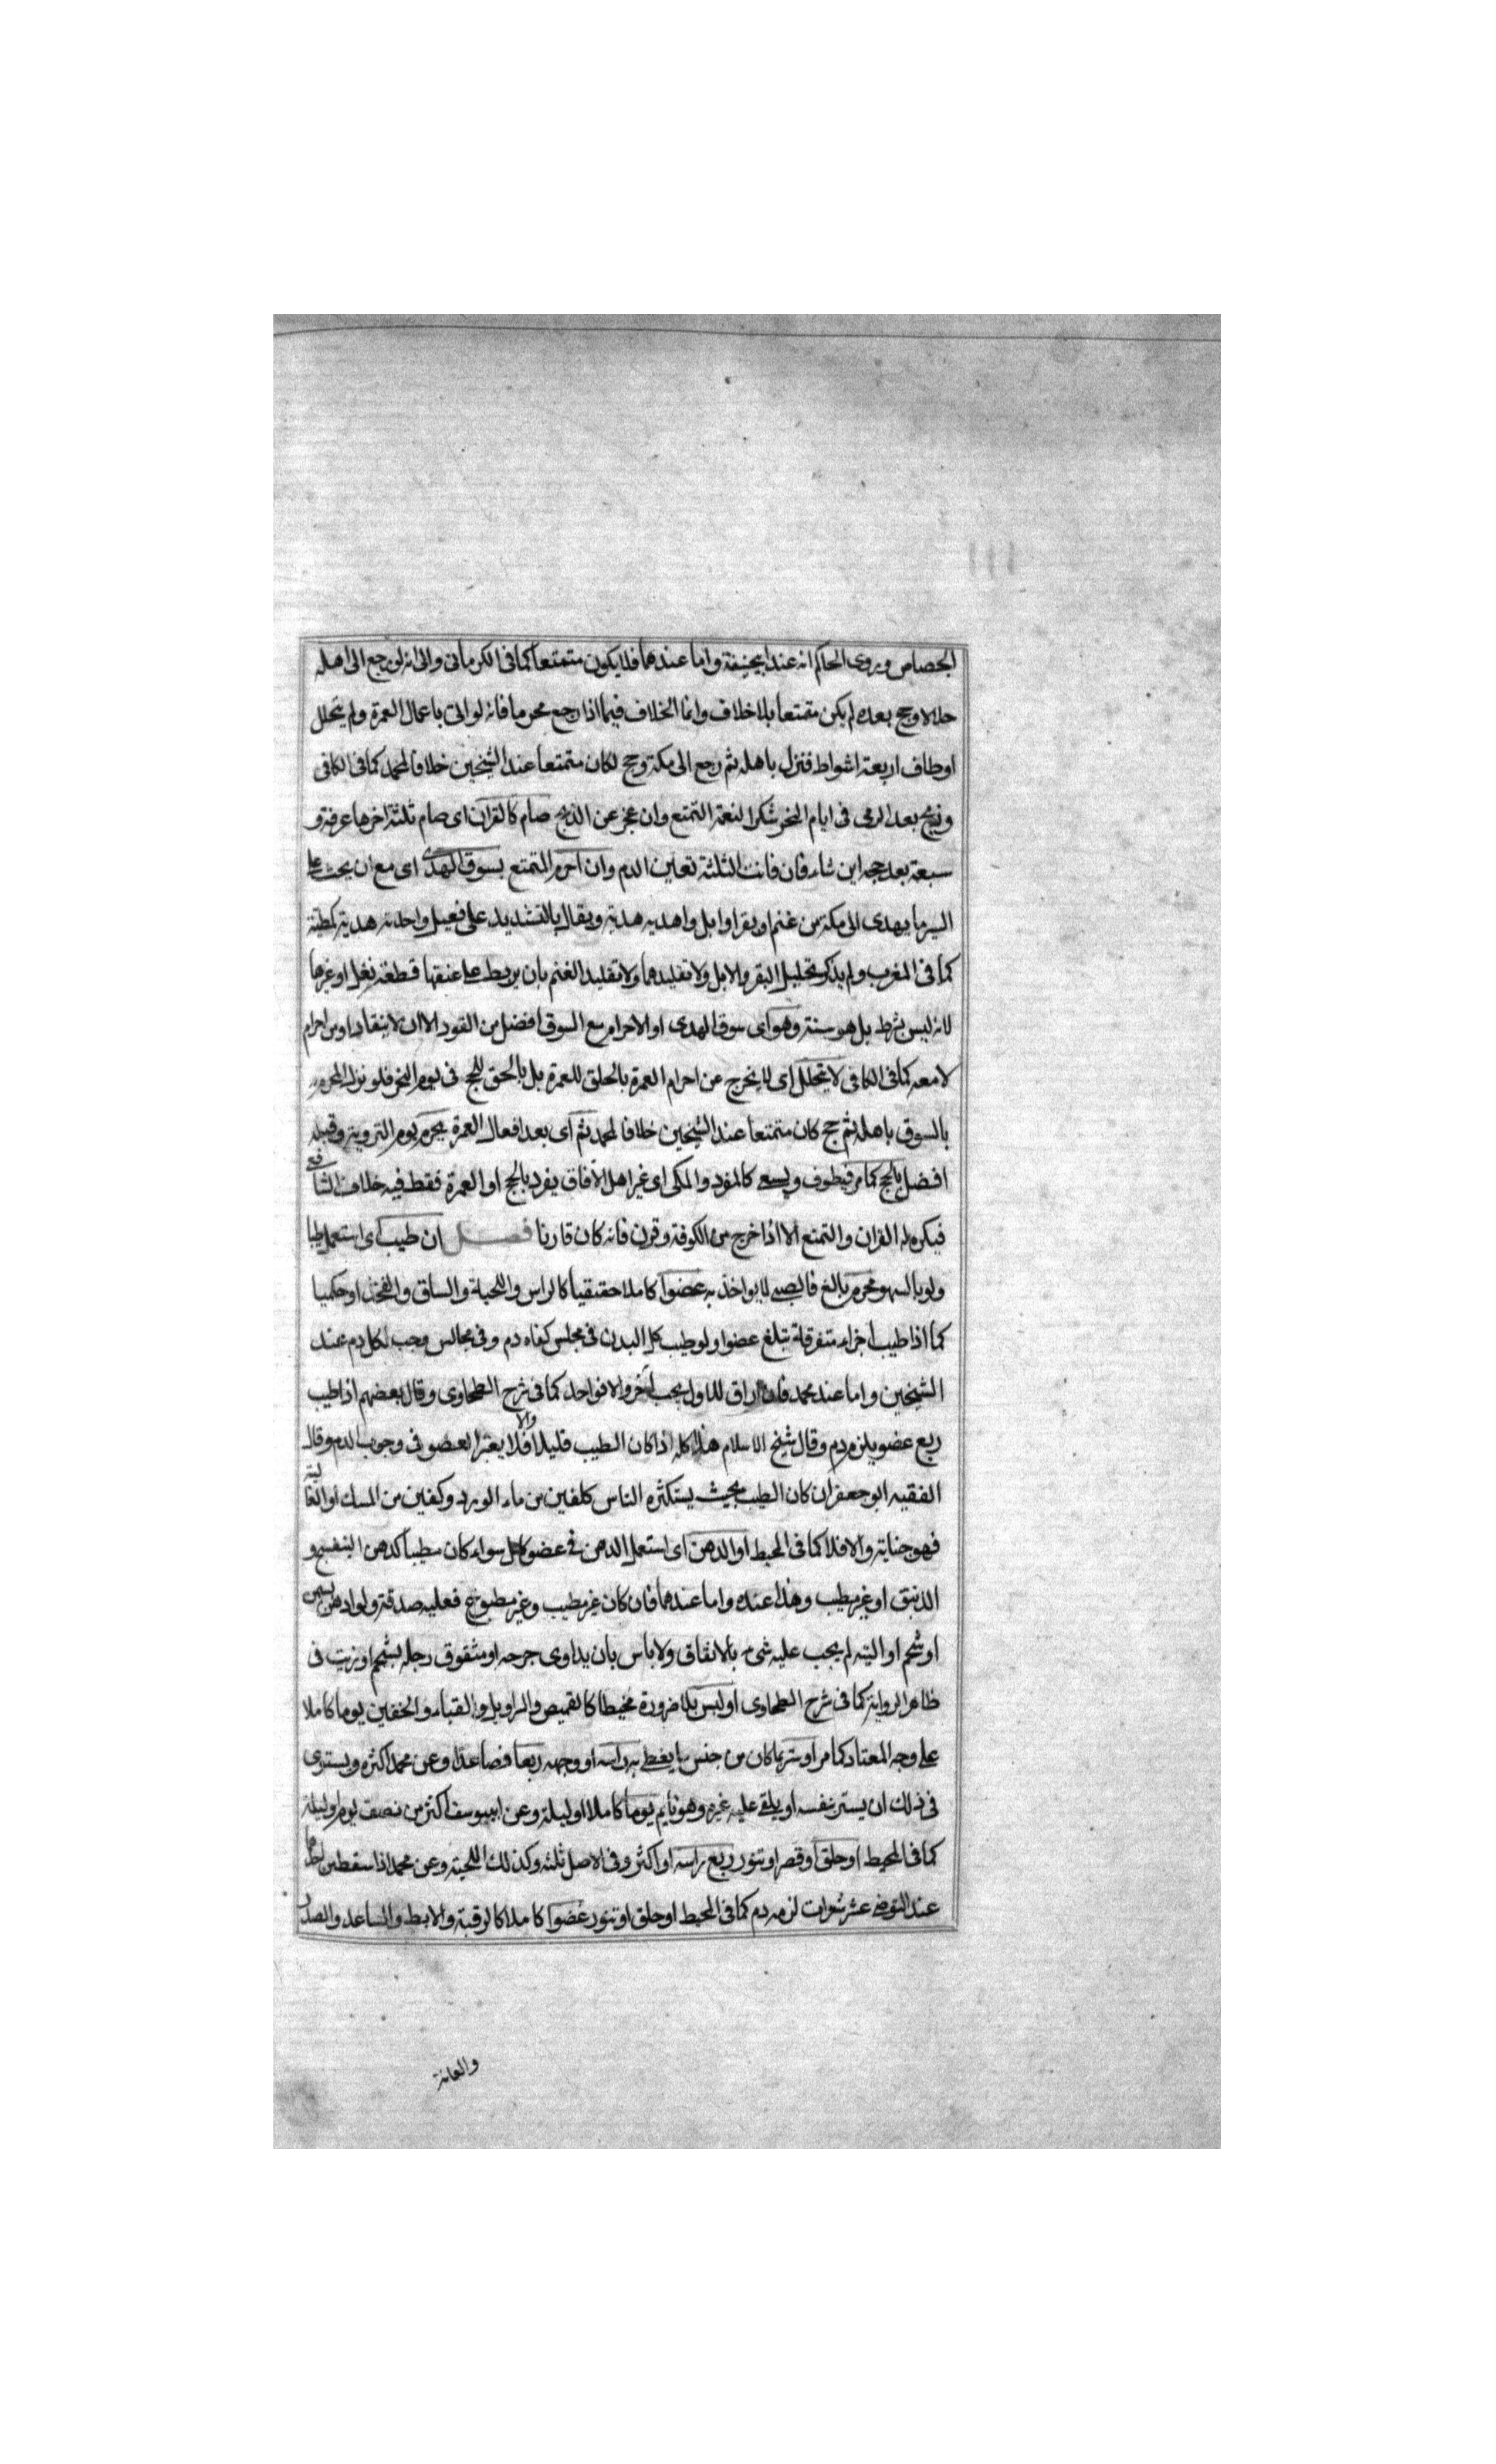 الجصاص وروى الحاكم انه عند ابيحنيفة واما عندهما فلا يكون متمتعا كما فى الكرمانى والى انه لو رجع الى اهله
حلالا وحج بعده لم يكن متمتعا بلا خلاف وانما الخلاف فيما اذا رجع محرما فانه لو اتى باعمال العمرة ولم يتحلل
او طاف اربعة اشواط فنزل باهله ثم رجع الى مكة وحج لكان متمتعا عند الشيخين خلافا لمحمد كما فى الكافى
وذبح بعد الرمى فى ايام النحر شكرا لنعمة التمتع وان عجز عن الذبح صام كالقران اى صام ثلثة اخرها عرفة و
سبعة بعد حجه اين شاء فان فاتت الثلثة تعين الدم وان احرم المتمتع بسوق الهدى اى مع ان يحث على
السير ما يهدى الى مكة من غنم او بقر او ابل واهديه هدية ويقال بالتشديد على فعيل واحدته هدية كمطية
كما فى المغرب ولم يذكر تجليل البقر والابل ولا تقليدهما ولا تقليد الغنم بان يربط على عنقها قطعة نعل او غيرها
لانه ليس بشرط بل هو سنة وهو اى سوق الهدى او الاحرام مع السوق افضل من القود الا ان لا ينقاد او من احرام
لا معه كما فى الكافى لا يتحلل اى لا يخرج عن احرام العمرة بالحلق للعمرة بل بالحق للحج فى يوم النحر فلو نزل المحرم
بالسوق باهله ثم حج كان متمتعا عند الشيخين خلافا لمحمد ثم اى بعد افعال العمرة يحرم يوم التروية وقبله
افضل بالحج كما مر فيطوف ويسعى كالمفرد والمكى اى غير اهل الآفاق يفرد بالحج او العمرة فقط فيه خلاف الشافعى
فيكره له القران والتمتع الا اذا خرج من الكوفة وقرن فانه كان قارنا فصل ان طيب اى استعمل طيبا
ولو بالسهو محرم بالغ فالصبى لا يواخذ به عضوا كاملا حقيقيا كالراس واللحية والساق والفخذ او حكميا
كما اذا طيب اجزاء متفرقة تبلغ عضوا ولو طيب كل البدن فى مجلس كفاه دم وفى مجالس وجب لكل دم عند
الشيخين واما عند محمد فان اراق للاول يجب آخر والا فواحد كما فى شرح الطحاوى وقال بعضهم اذا طيب
ربع عضو يلزم دم وقال شيخ الاسلام هذا كله اذا كان الطيب قليلا والا فلا يعتبر العضو فى وجوب الدم وقال
الفقيه ابو جعفر ان كان الطيب بحيث يستكثره الناس كلفين من ماء الورد وكفين من المسك او الغالية
فهو جناية والا فلا كما فى المحيط او الدهن اى استعمل الدهن فى عضو كامل سواء كان مطيبا كدهن البنفسج و
الدنبق او غير مطيب وهذا عنده واما عندهما فان كان غير مطيب وغير مطبوخ فعليه صدقة ولو ادهن بسمن
او شحم او الية لم يجب عليه شىء بالاتفاق ولا باس بان يداوى جرحه او شقوق رجله بشحم او زيت فى
ظاهر الرواية كما فى شرح الطحاوى او لبس بلا ضرورة مخيطا كالقميص والسراويل والقباء والخفين يوما كاملا
على وجه المعتاد كما مر او ستر بما كان من جنس ما يغطى به راسه او وجهه ربعا فصاعدا وعن محمد اكثره ويستوى
فى ذلك ان يستر بنفسه او يلقى عليه غيره وهو نايم يوما كاملا او ليلة وعن ابييوسف اكثر من نصف يوم او ليلة
كما فى المحيط او حلق او قصر او تنور ربع راسه او اكثر وفى الاصل ثلثه وكذلك اللحية وعن محمد اذا سقط من احدها
عند التوضى عشر شعرات لزمه دم كما فى المحيط او حلق او تنور عضوا كاملا كالرقبة والابط والساعد والصدر
والعانة